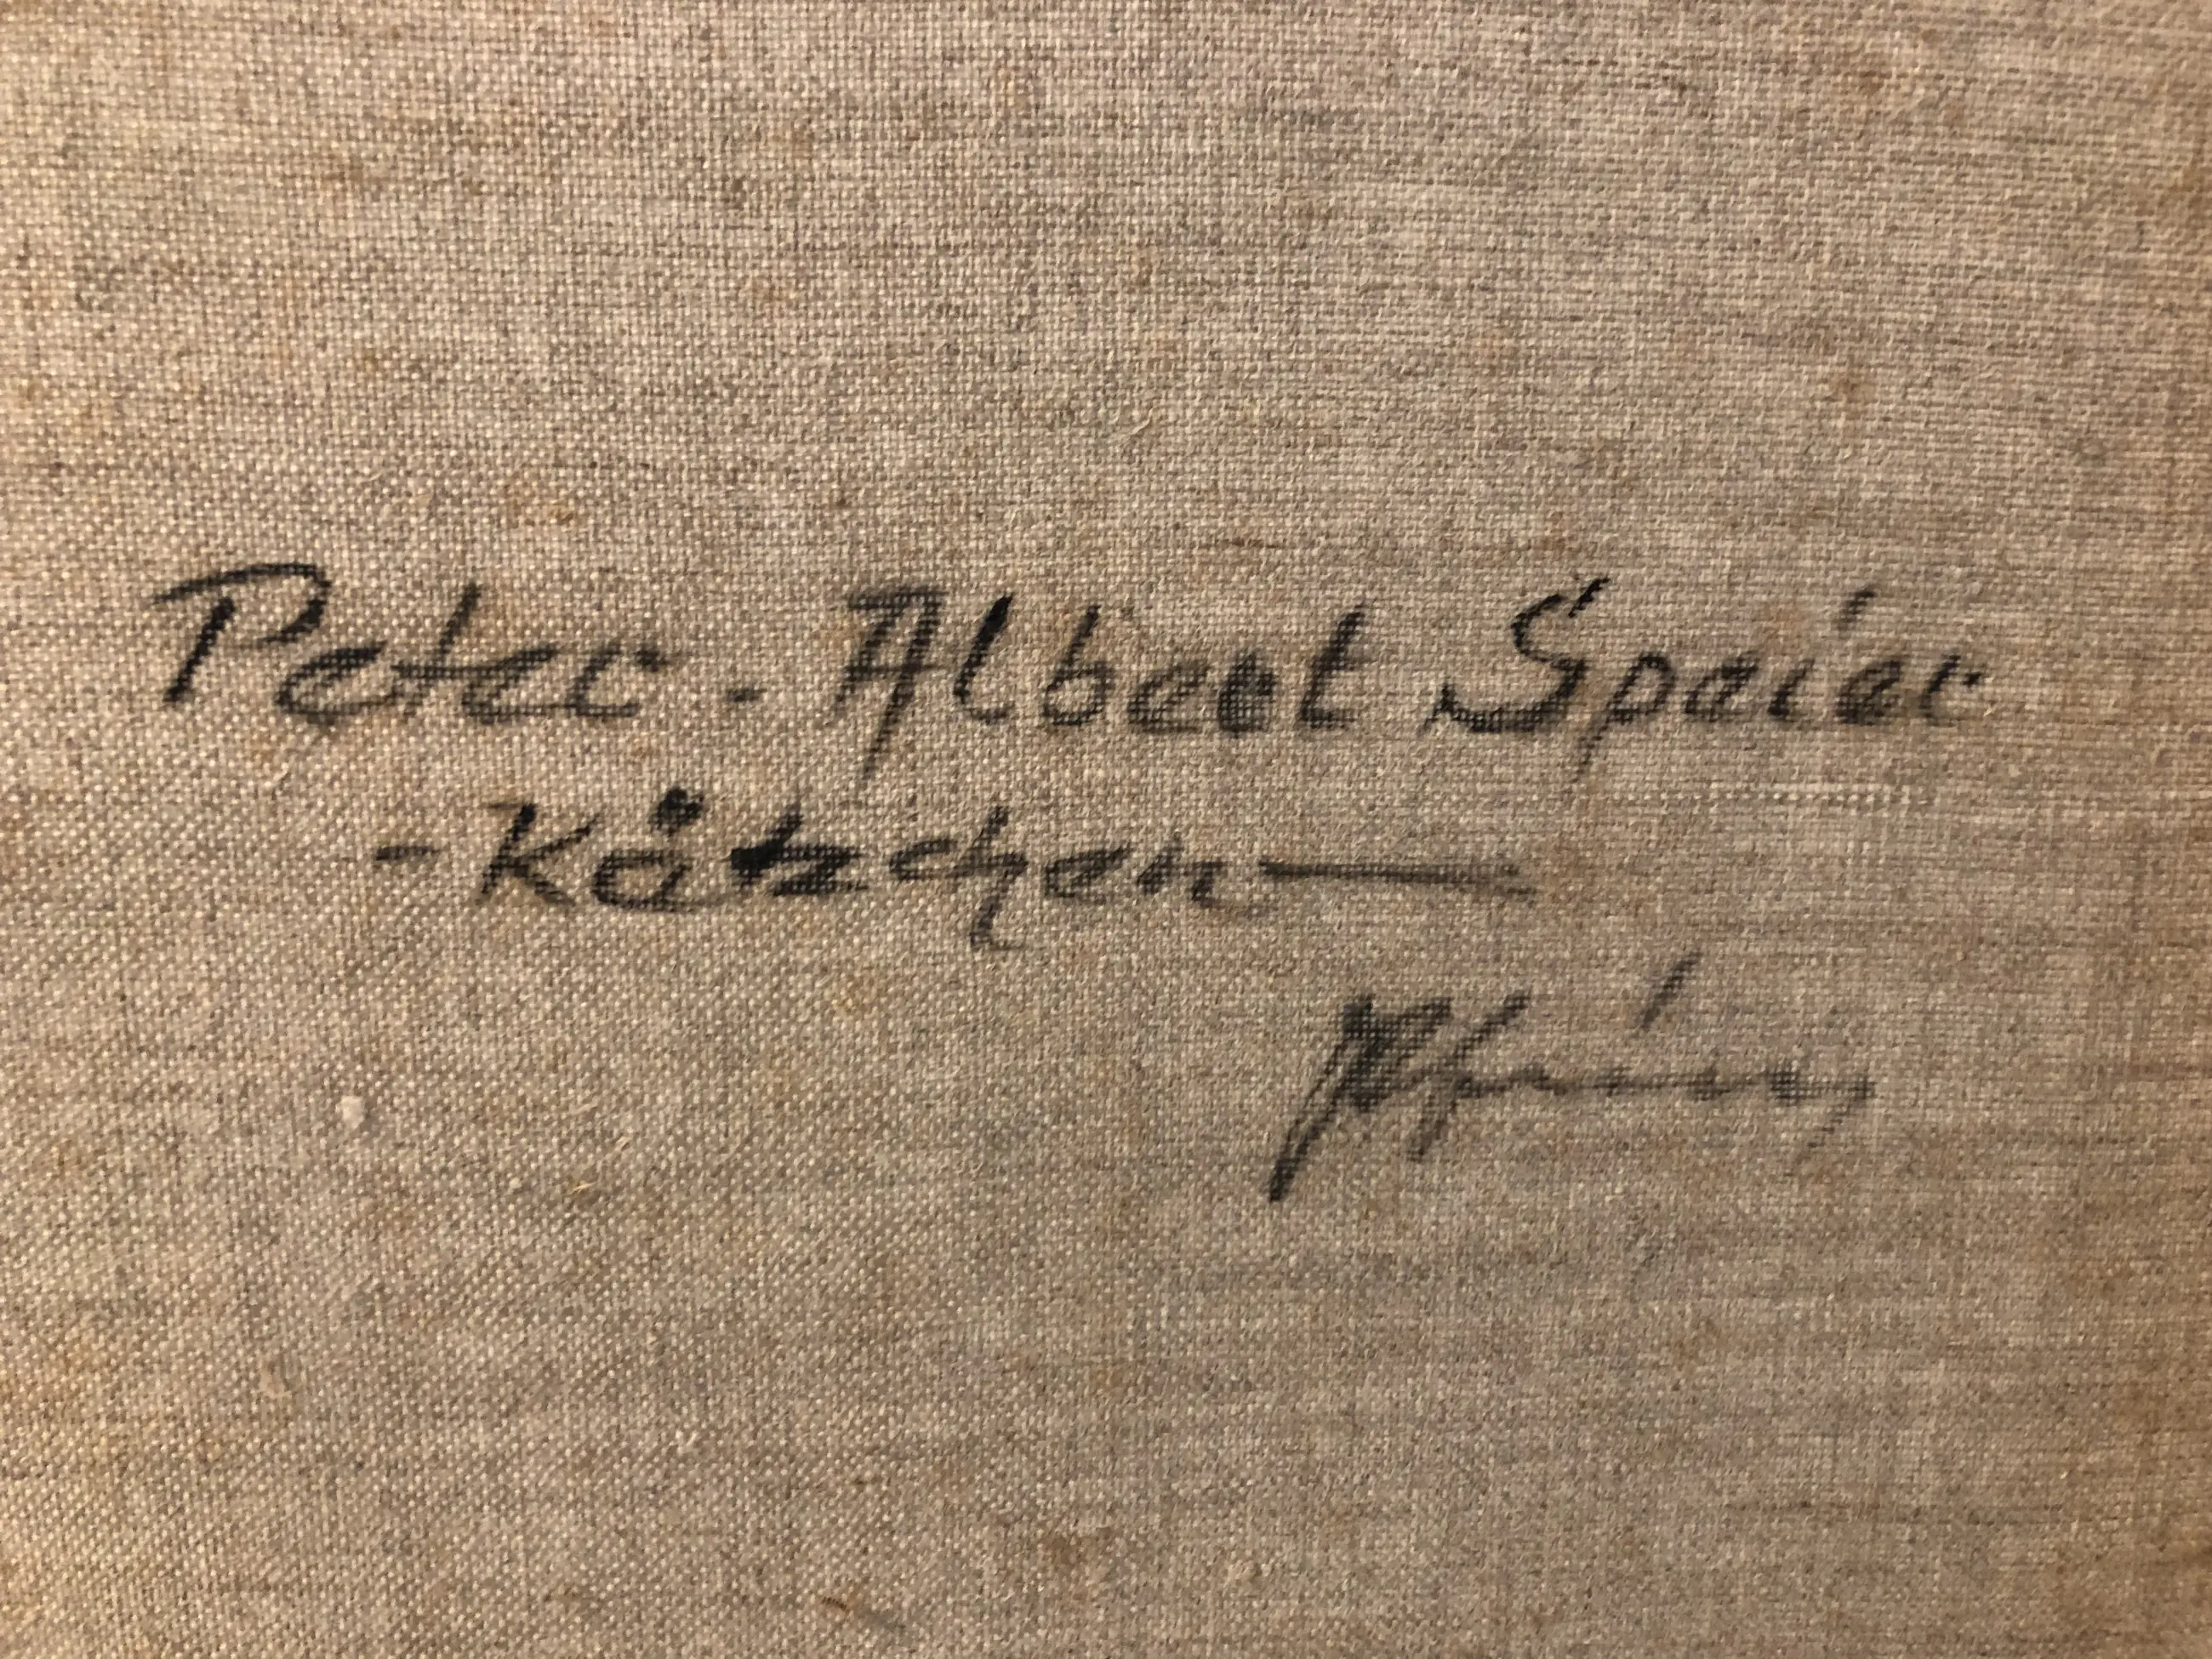 Peter - Albert Speier
- Kätzchen —